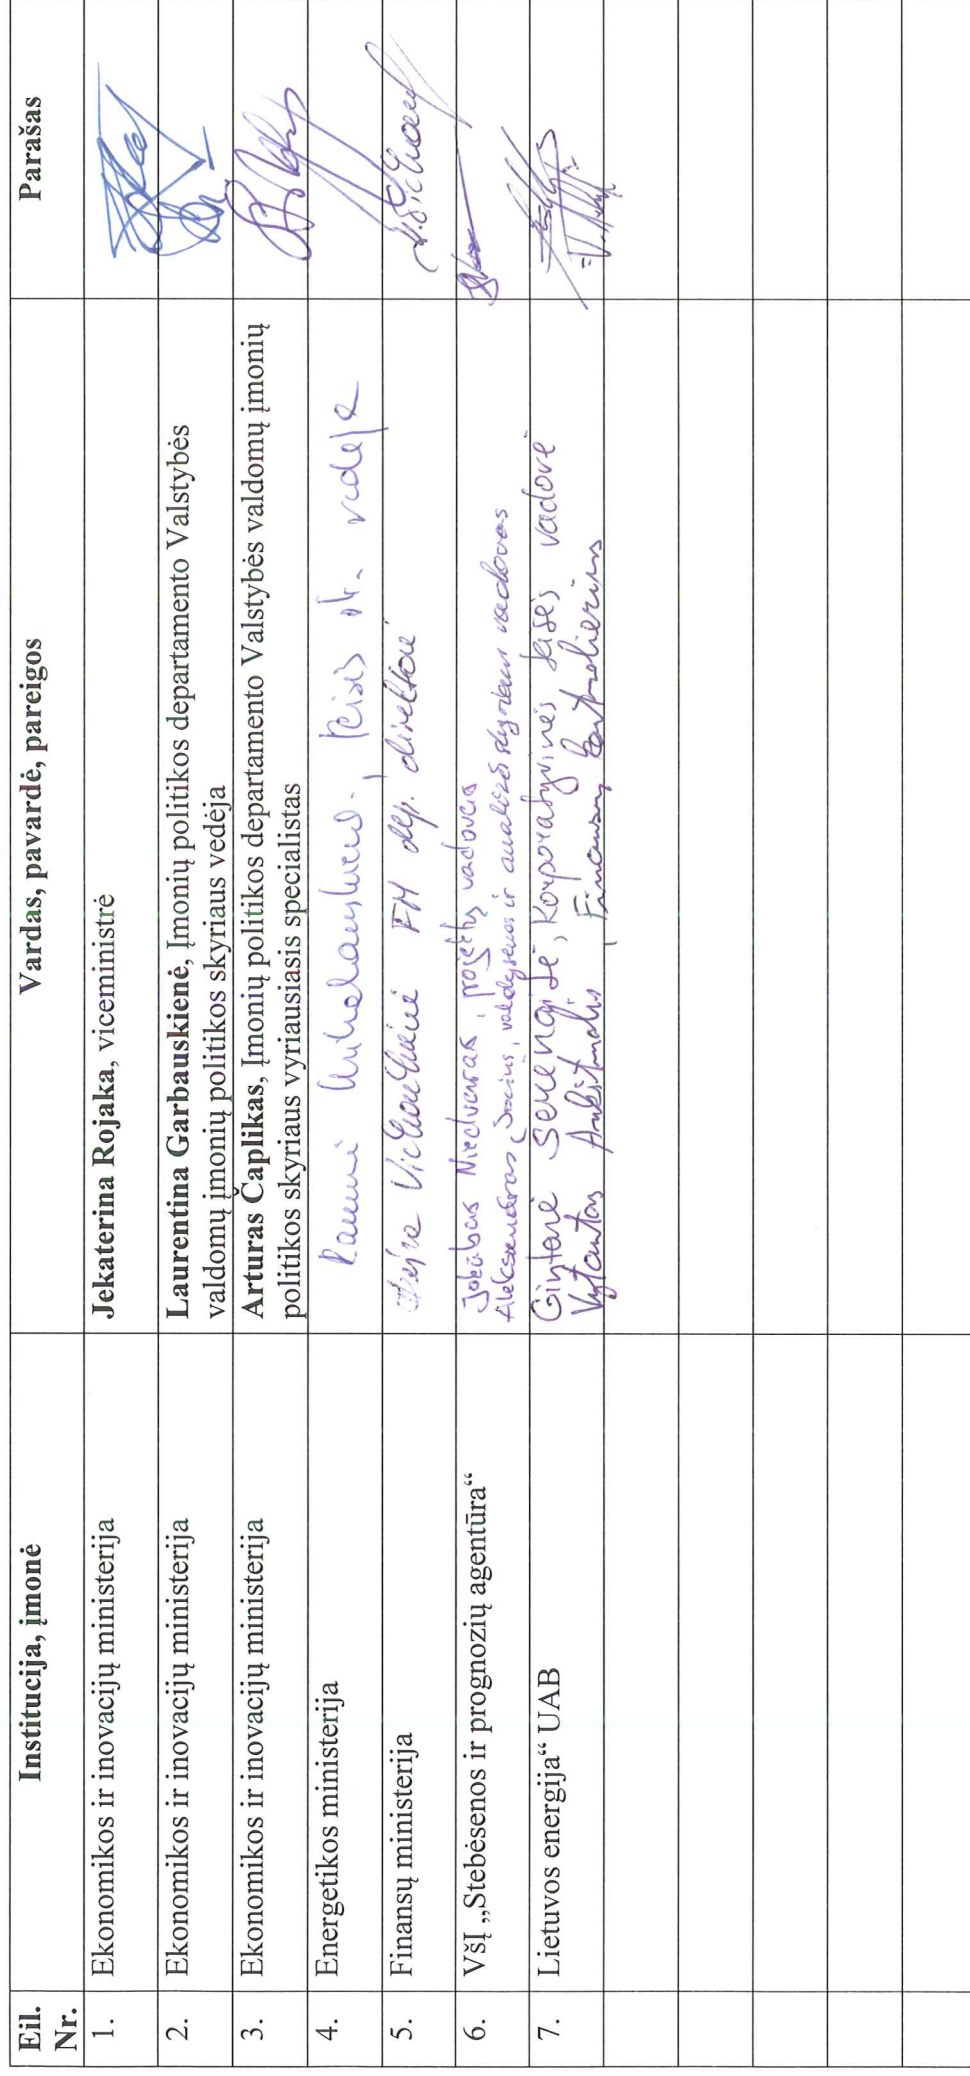 Eil. Nr. Institucija, įmonė Vardas, pavardė, pareigos Parašas
1. Ekonomikos ir inovacijų ministerija Jekaterina Rojaka, viceministrė
2. Ekonomikos ir inovacijų ministerija Laurentina Garbauskienė, Įmonių politikos departamento Valstybės
valdomų įmonių politikos skyriaus vedėja
3. Ekonomikos ir inovacijų ministerija Arturas Čaplikas, Įmonių politikos departamento Valstybės valdomų įmonių
politikos skyriaus vyriausiasis specialistas
4. Energetikos ministerija
5. Finansų ministerija FM dep. direktorė
6. VšĮ „Stebėsenos ir prognozių agentūra“ Jokūbas Niedvaras, projektų vadovas
Aleksandras, valdysenos ir analizės skyriaus vadovas
7. Lietuvos energija“ UAB Gintarė Serengaitė, Korporatyvinės teisės vadovė
Vytautas, Finansų kontrolierius